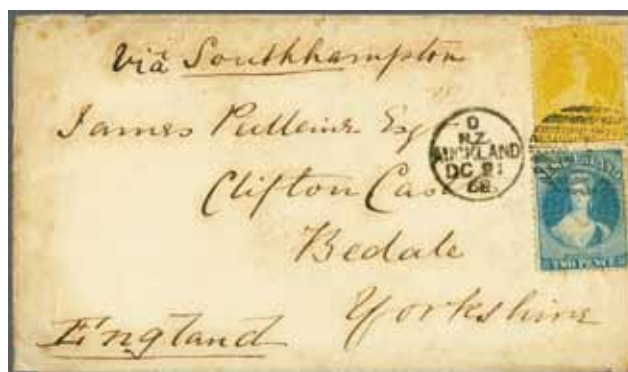 Via Southhampton
James Pulleine Esq
Clifton Cas
Bedale
Yorkshire
England
D
N.Z.
AUCKLAND
DC 21
68
TWO PENCE